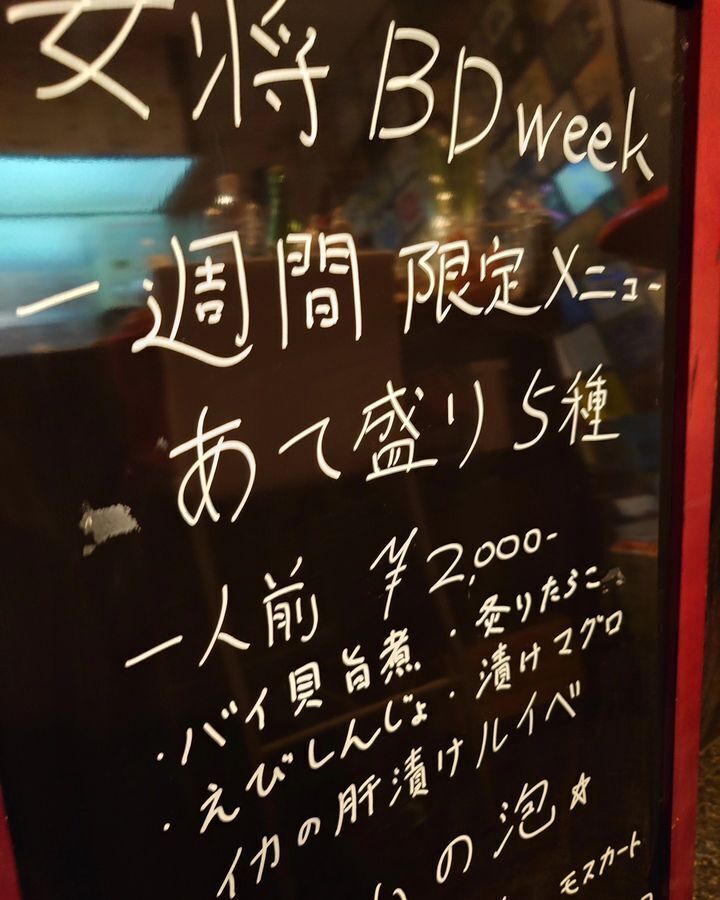 女将 BD week
一週間 限定メニュー
あて盛り 5種
一人前 ¥2,000-
・バイ貝旨煮 ・炙りたらこ
・えびしんじょ ・漬けマグロ
イカの肝漬けルイベ
の泡☆
モスカート